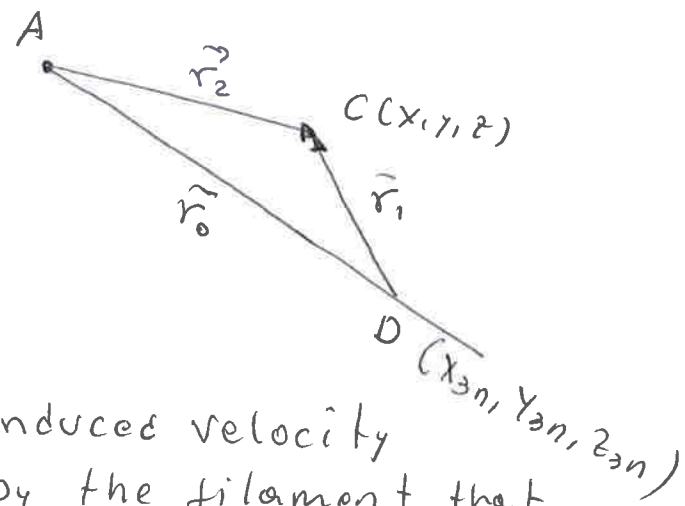 A
r⃗₂
C(x,y,z)
r⃗₀
r⃗₁
D
(x₃ₙ, y₃ₙ, z₃ₙ)
induced velocity
by the filament that